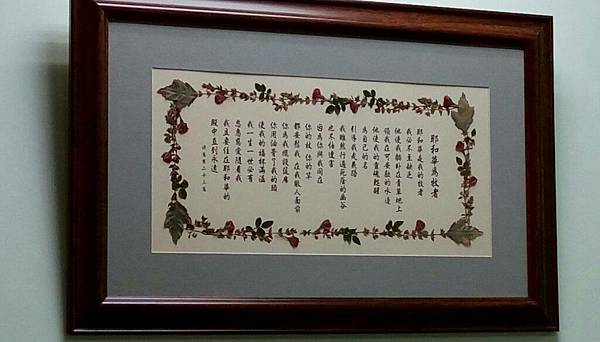 耶和華為牧者
耶和華是我的牧者
我必不至缺乏
他使我躺卧在青草地上
領我在可安歇的水邊
他使我的靈魂甦醒
為自己的名
引導我走義路
我雖然行過死蔭的幽谷
也不怕遭害
因為你與我同在
你的杖 你的竿
都安慰我 在我敵人面前
你為我擺設筵席
你用油膏了我的頭
使我的福杯滿溢
我一生一世必有
恩惠慈愛隨著我
我且要住在耶和華的
殿中直到永遠
詩篇第二十三篇